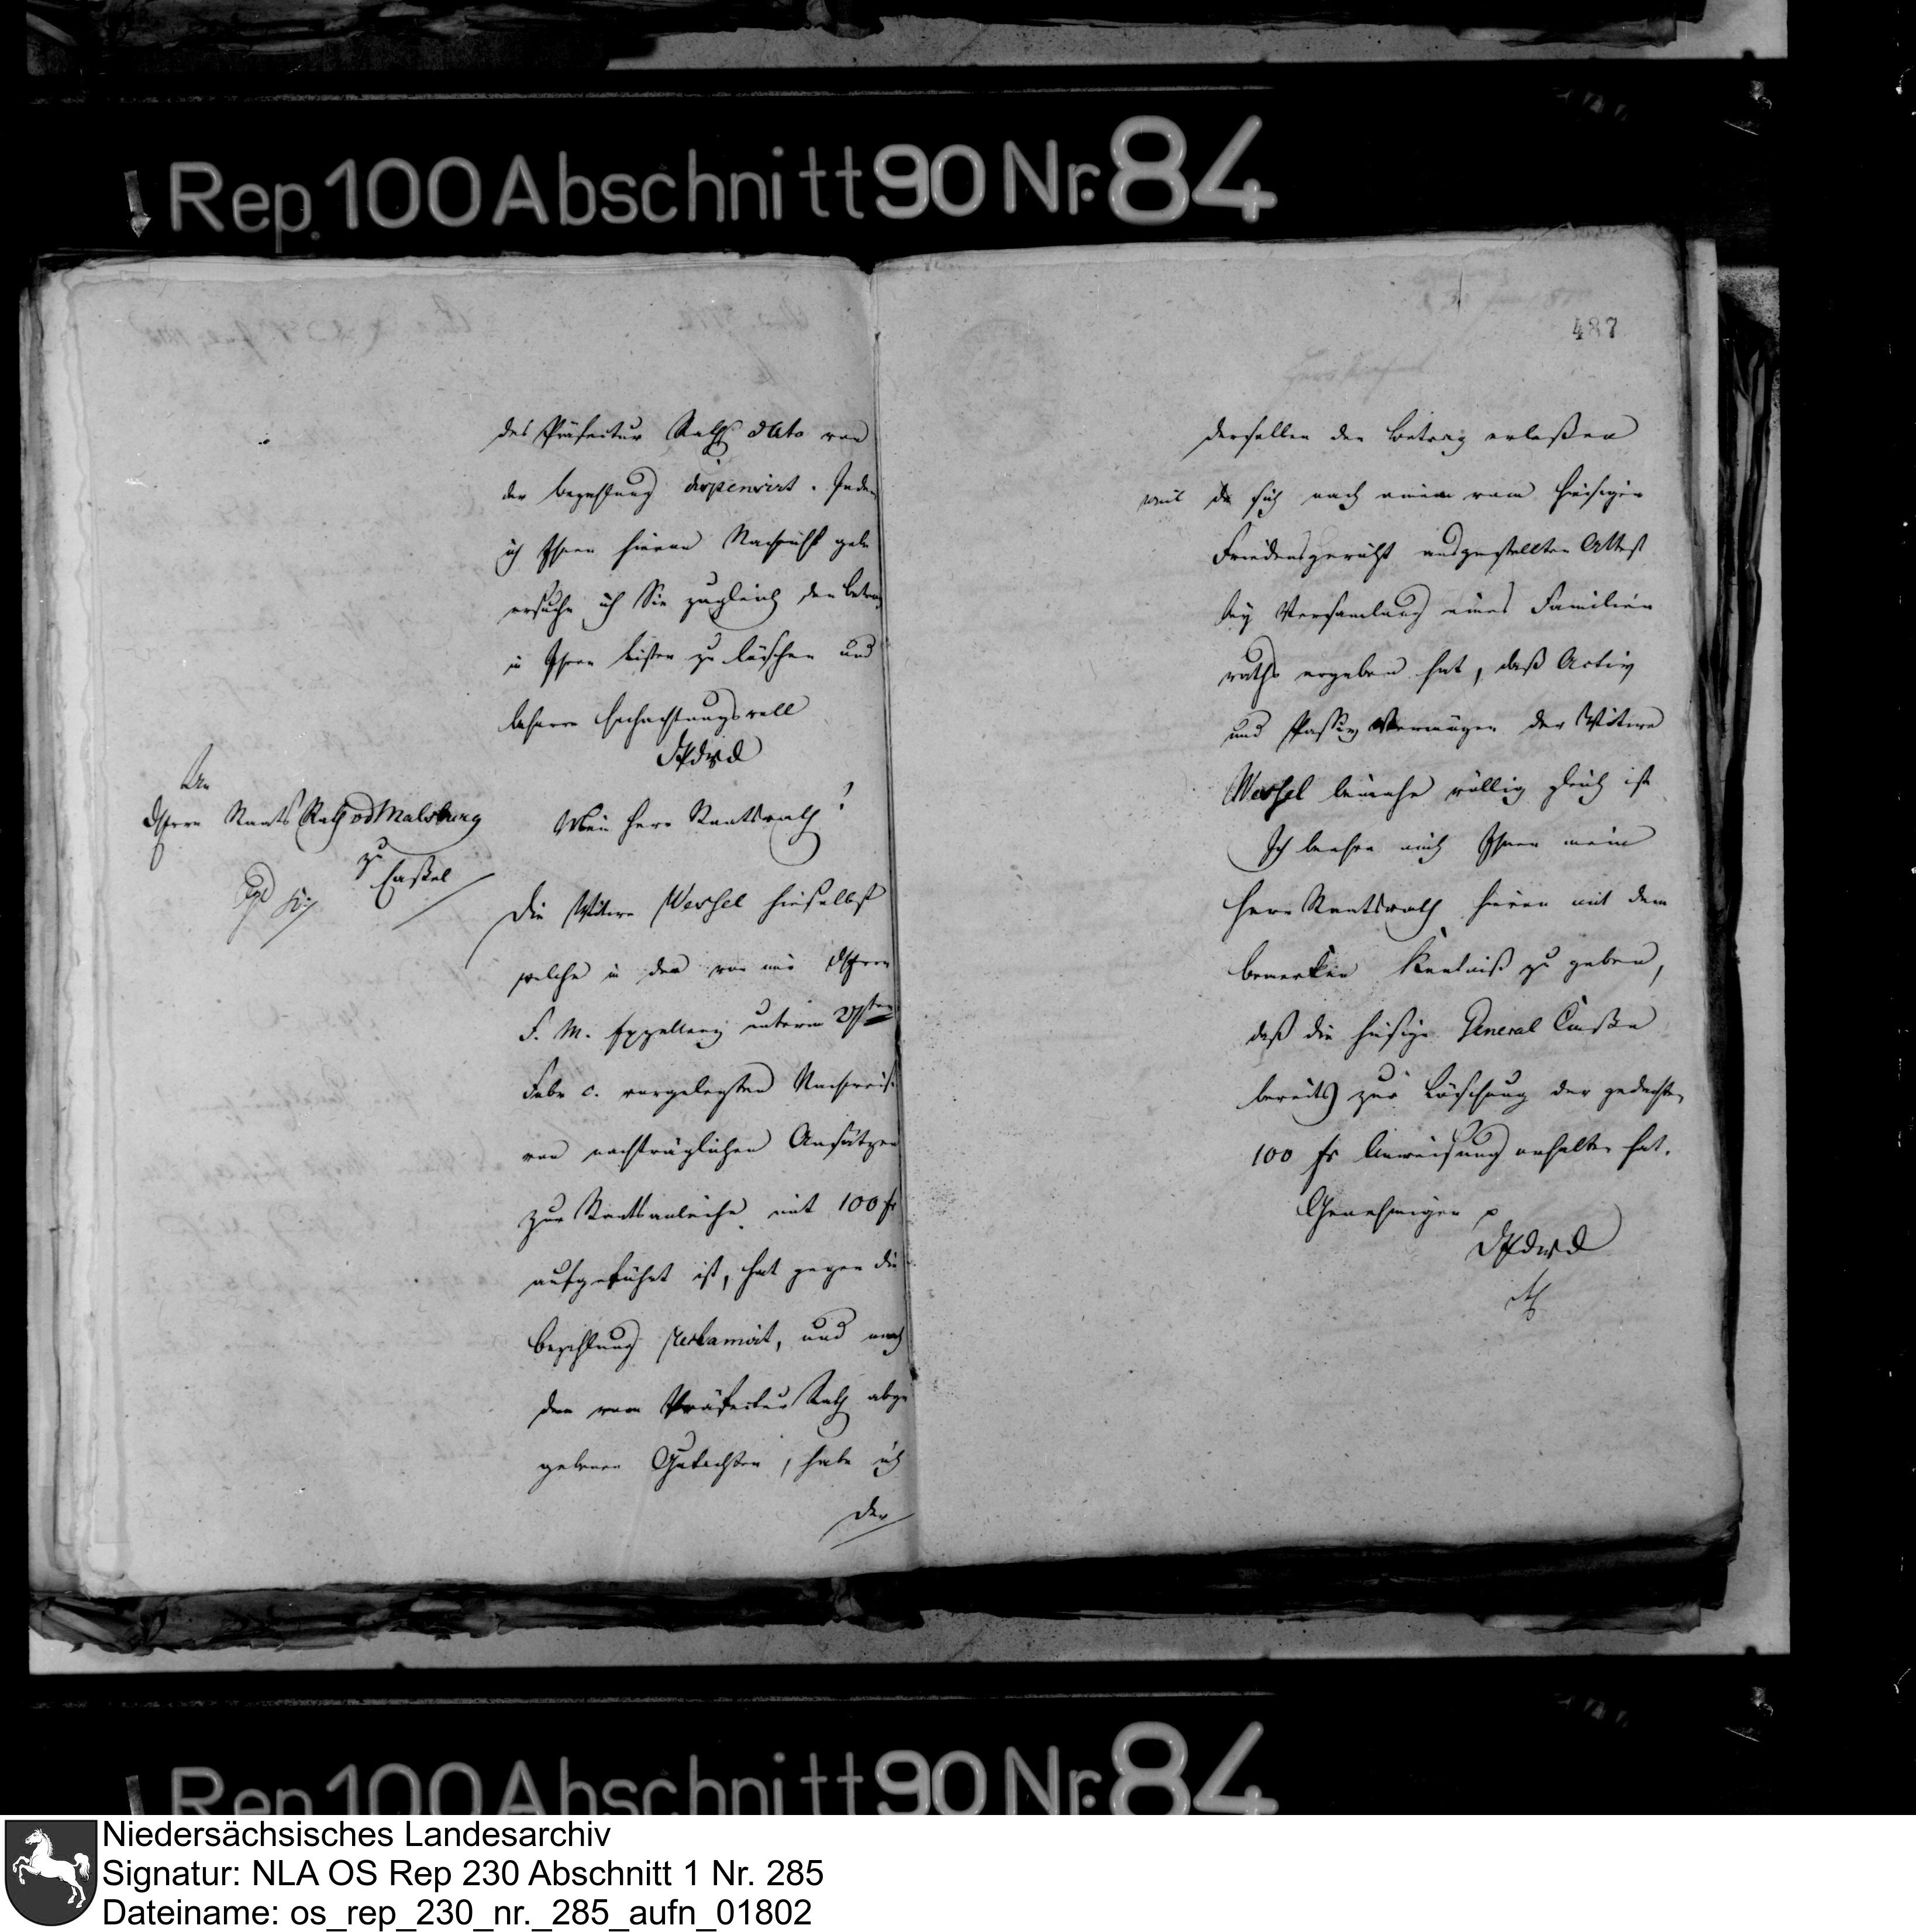 Rep. 100 Abschnitt 90 Nr. 84
des Präfectur Raths dato von
der Bezahlung dispensirt. Indem
ich Ihnen hievon Nachricht gebe
ersuche ich Sie zugleich den Betrag
in Ihren Listen zu löschen und
beharre Hochachtungsvoll
An
Herrn Staats Rath v d Malsburg
zu
Cassel
Mein Herr Staatsrath!
Die Witwe Wessel hieselbst
welche in der von mir Herrn
F. M. unterm
Febr c. vorgelegten Nachweis.
von nachträglichen Ansätzen
zur Staatsanleihe mit 100 fr
aufgeführt ist, hat gegen die
Bezahlung reclamirt, und nach
dem vom Präfectur Rath abge
gebenen Gutachten, habe ich
der
487
derselben den Betrag erlaßen
weil sich nach einem vom hiesigen
Friedensgericht ausgestellten Attest
bey Versamlung eines Familien
raths ergeben hat, daß Activ
und Passiv Vermögen der Witwe
Wessel beinahe völlig gleich ist
Ich beehre mich Ihnen mein
Herr Staatsrath hievon mit dem
Bemerken Kentniß zu geben,
daß die hiesige General Casse
bereits zur Löschung der gedachten
100 fr Anweisung erhalten hat.
Genehmigen p
↓ Rep. 100 Abschnitt 90 Nr. 84
Niedersächsisches Landesarchiv
Signatur: NLA OS Rep 230 Abschnitt 1 Nr. 285
Dateiname: os_rep_230_nr._285_aufn_01802